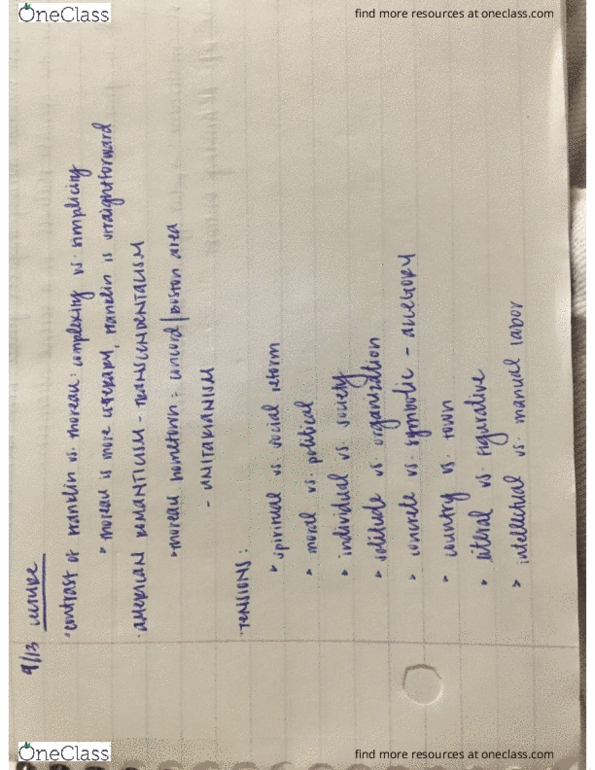 OneClass
find more resources at oneclass.com
9/13 lecture
·contrast of Franklin vs. Thoreau: complexity vs. simplicity
• Thoreau is more literary, Franklin is straightforward
·AMERICAN ROMANTICISM - TRANSCENDENTALISM
•Thoreau hometown = Concord/Boston area
- UNITARIANISM
·TENSIONS:
➤ spiritual vs social reform
➤ moral vs. political
➤ individual vs. society
➤ solitude vs. organization
➤ concrete vs. symbolic - ALLEGORY
➤ country vs. town
➤ literal vs. figurative
➤ intellectual vs. manual labor
OneClass
find more resources at oneclass.com